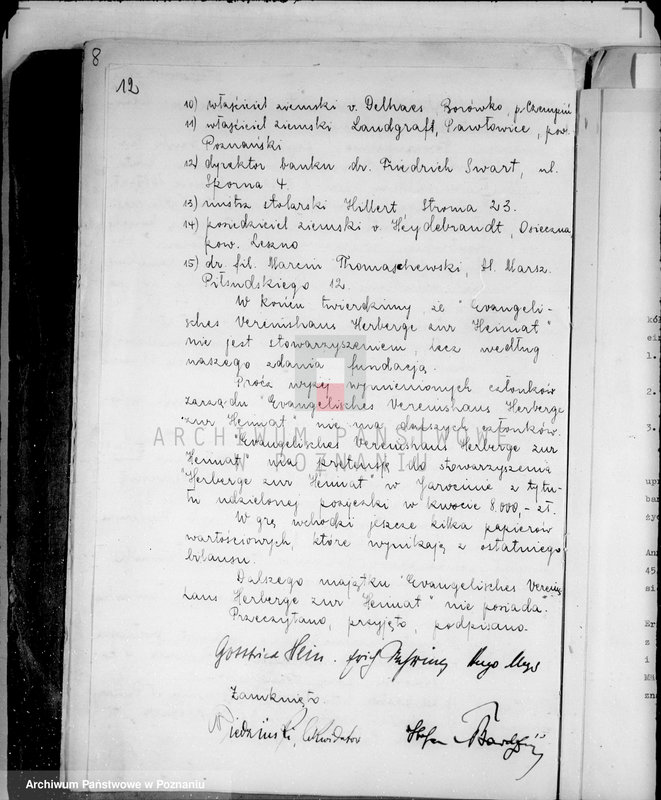 8
12
10) właściciel ziemski v. Delhaes, Borówko, p. Czempiń
11) właściciel ziemski Landgraft, Pawłowice, pow.
Poznański
12) dyrektor banku dr. Friedrich Swart, ul.
Sporna 4.
13) mistrz stolarski Hillert Stroma 23.
14) posiedziciel ziemski v. Heydebrandt, Osieczna
pow. Leszno
15) dr. fil. Marcin Thomaschewski, Al. Marsz.
Piłsudskiego 12.
W końcu twierdzimy, że "Evangeli-
sches Vereinshaus Herberge zur Heimat"
nie jest stowarzyszeniem, lecz według
naszego zdania fundacją.
Prócz wyżej wymienionych członków
zarządu "Evangelisches Vereinshaus Herberge
zur Heimat" nie ma dalszych członków.
"Evangelisches Vereinshaus Herberge zur
Heimat" ma pretensję do stowarzyszenia
"Herberge zur Heimat" w Jarocinie z tytu-
łu udzielonej pożyczki w kwocie 8.000,- zł.
W grę wchodzi jeszcze kilka papierów
wartościowych, które wynikają z ostatniego
bilansu.
Dalszego majątku "Evangelisches Vereins-
haus Herberge zur Heimat" nie posiada.
Przeczytano, przyjęto, podpisano.
Gottfried Hein. Erich Hugo
Zamknięto.
likwidator Stefan
ARCHIWUM PAŃSTWOWE
W POZNANIU
1.
2.
3.
Archiwum Państwowe w Poznaniu